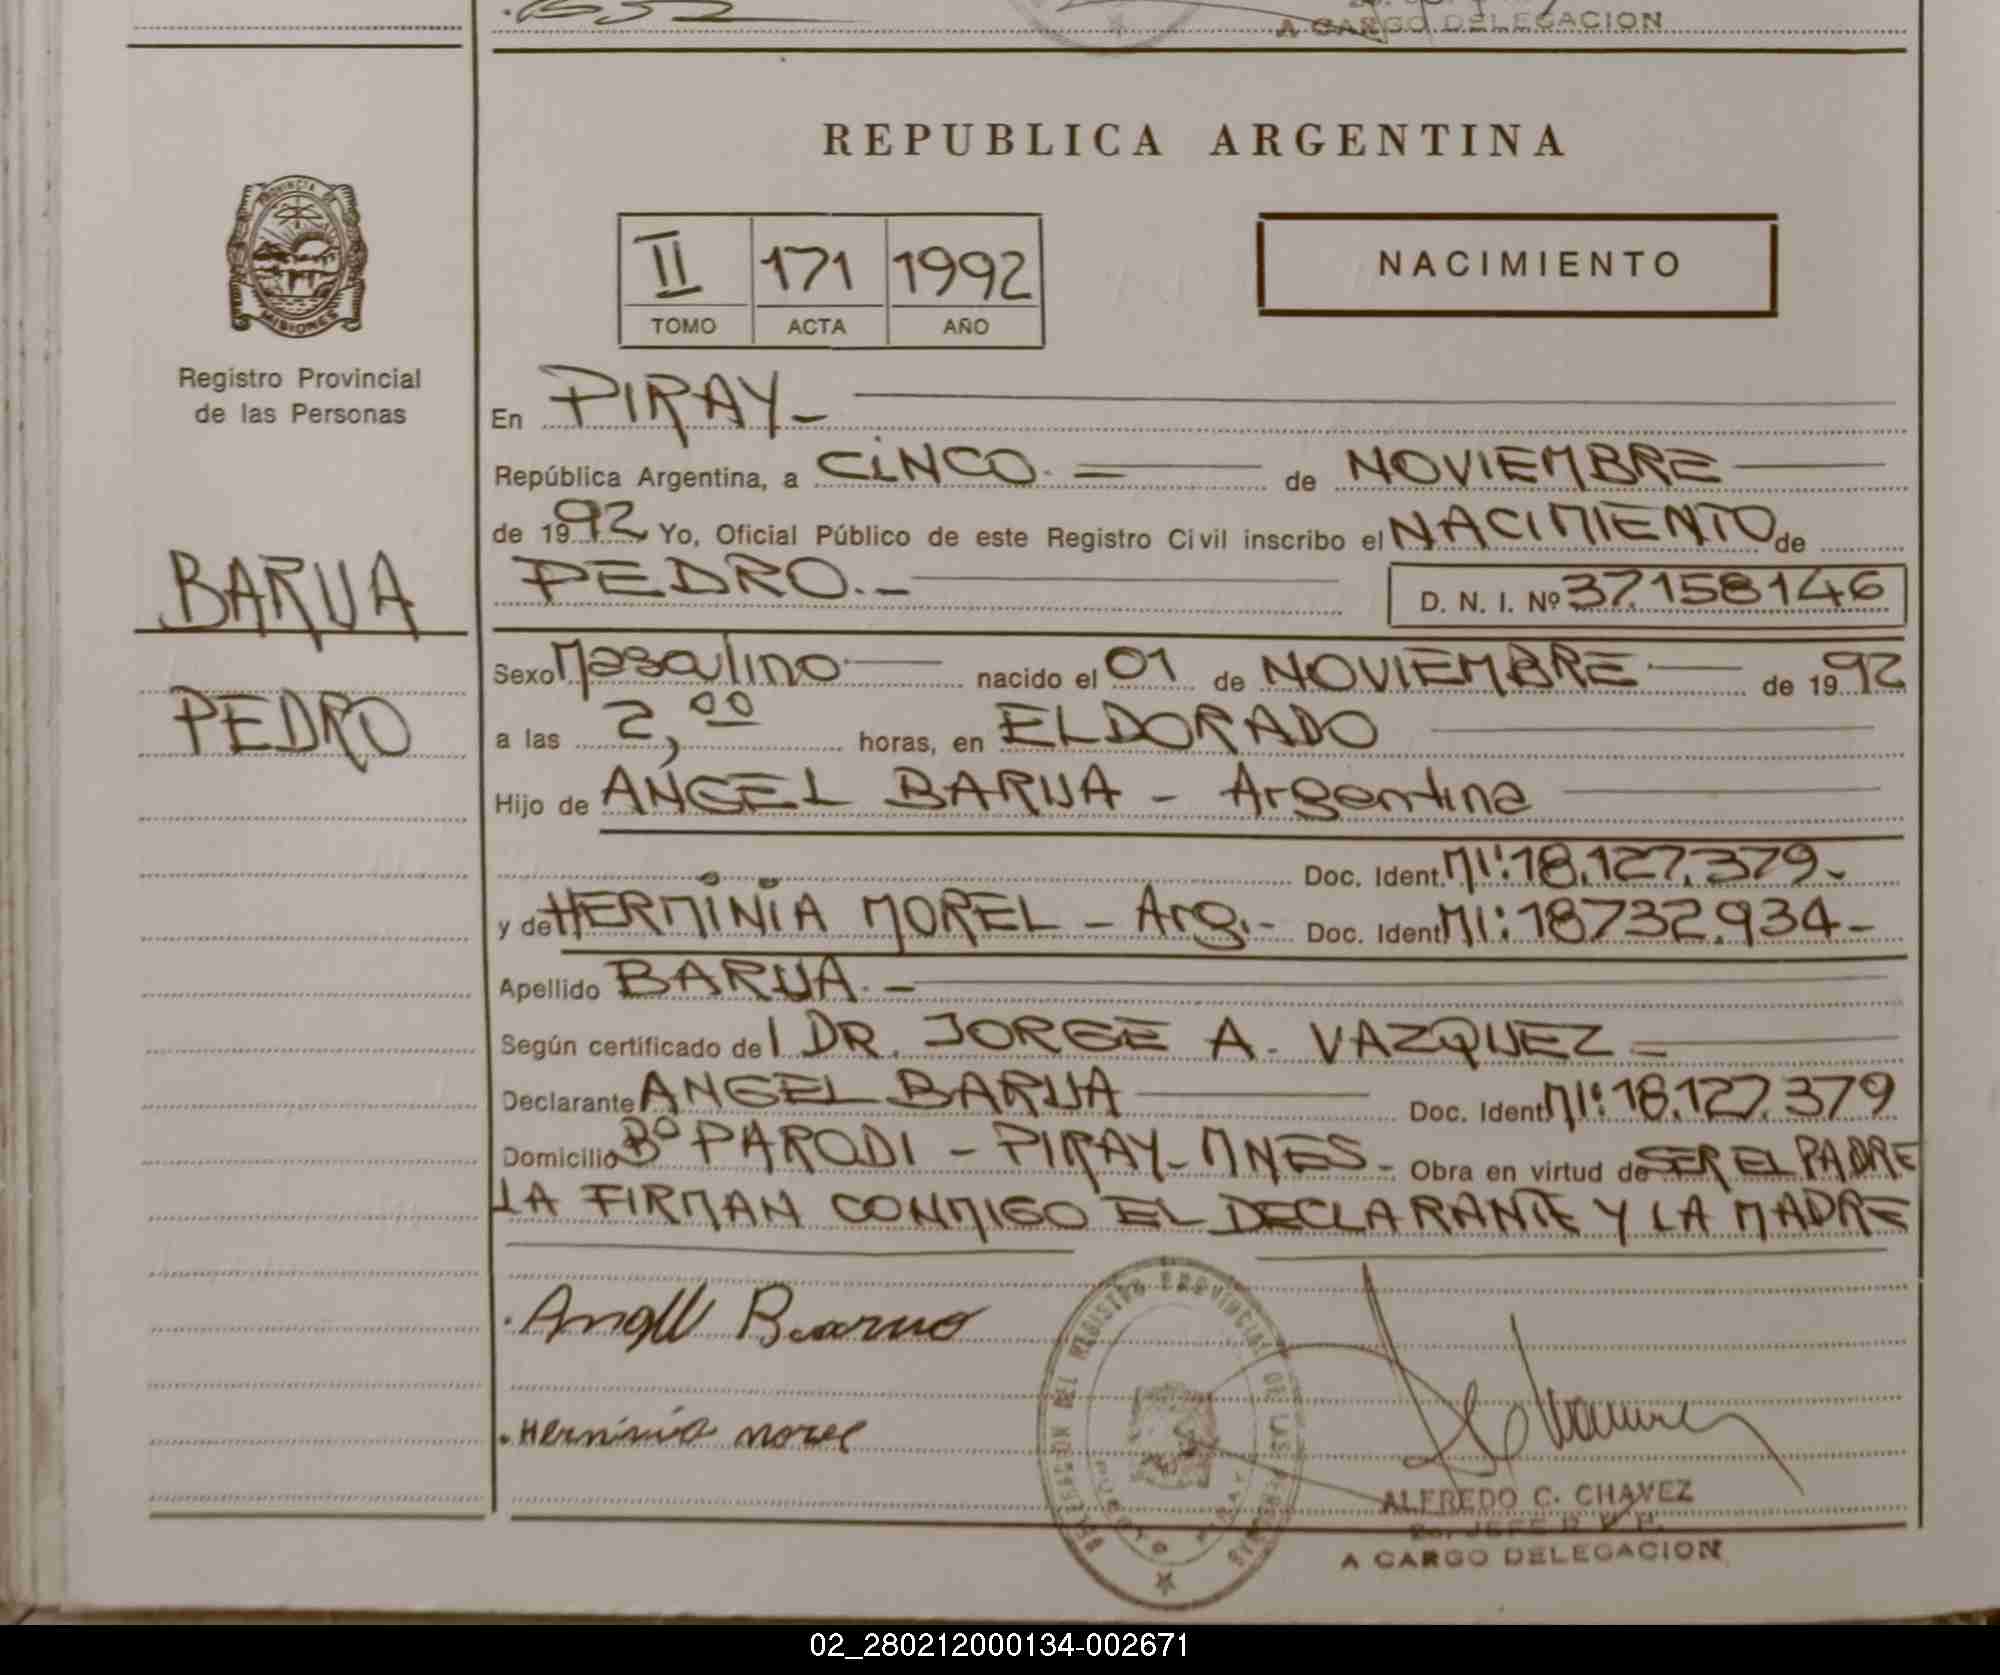 A CARGO DELEGACION
REPUBLICA ARGENTINA
PROVINCIA DE
MISIONES
Registro Provincial
de las Personas
BARUA
PEDRO
II 171 1992
TOMO ACTA AÑO
NACIMIENTO
En PIRAY-
República Argentina, a CINCO.- de NOVIEMBRE
de 1992 Yo, Oficial Público de este Registro Civil inscribo el NACIMIENTO de
PEDRO.- D. N. I. Nº 37.158146
Sexo Masculino nacido el 01 de NOVIEMBRE de 1992
a las 2,00 horas, en ELDORADO
Hijo de ANGEL BARUA - Argentina
Doc. Ident. MI:18.127.379-
y de HERMINIA MOREL - Arg.- Doc. Ident MI:18732.934-
Apellido BARUA.-
Según certificado del DR. JORGE A. VAZQUEZ-
Declarante ANGEL BARUA Doc. Ident MI:18.127.379
Domicilio Bº PARODI - PIRAY-MNES- Obra en virtud de SER EL PADRE
LA FIRMAN CONMIGO EL DECLARANTE Y LA MADRE
Angel Barua
Herminia morel
REGISTRO PROVINCIAL DE LAS PERSONAS
PUERTO PIRAY
ALFREDO C. CHAVEZ
2o. JEFE R. P. P.
A CARGO DELEGACION
02_280212000134-002671